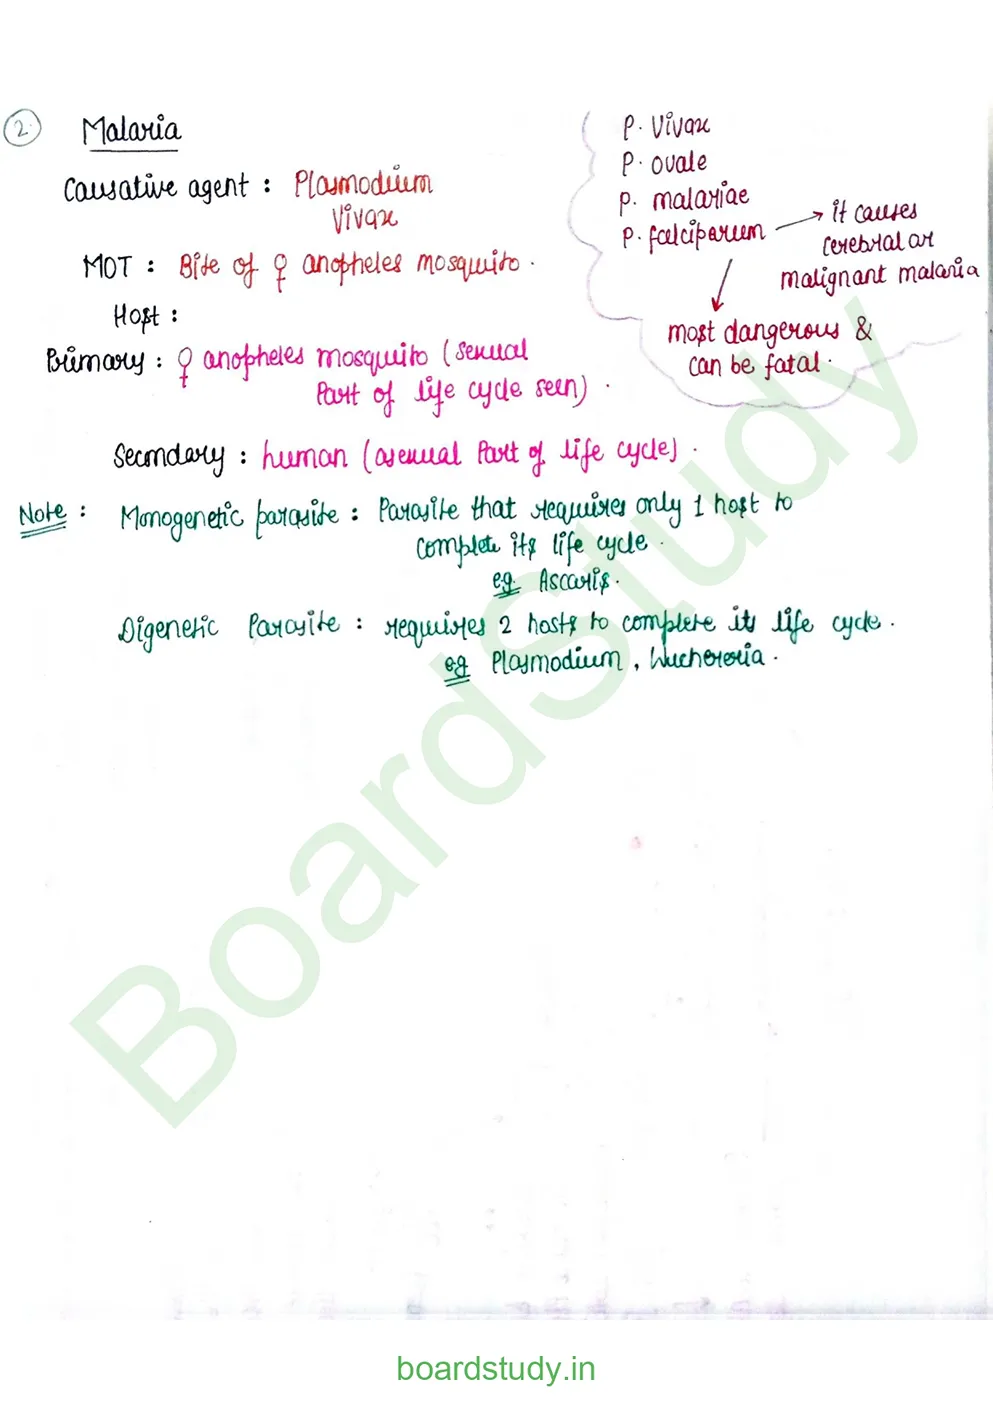 2.
Malaria
Causative agent : Plasmodium
Vivax
MOT : Bite of ♀ anopheles mosquito .
Host :
Primary : ♀ anopheles mosquito (sexual
Part of life cycle seen) .
Secondary : human (asexual Part of life cycle) .
P. Vivax
P. ovale
P. malariae
P. falciparum → it causes
cerebral or
malignant malaria
most dangerous &
can be fatal .
Note : Monogenetic parasite : Parasite that requires only 1 host to
complete its life cycle .
eg. Ascaris .
Digenetic Parasite : requires 2 hosts to complete its life cycle .
eg Plasmodium , Wuchereria .
BoardStudy
boardstudy.in